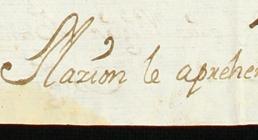 Marion le aprehen